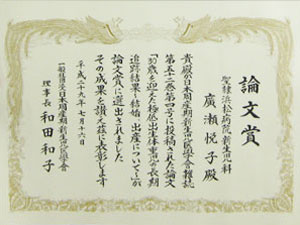 論文賞
聖隷浜松病院新生児科
廣瀬悦子殿
貴殿の日本周産期新生児医学会雑誌
第五十二巻第四号に投稿された論文
「30歳を迎えた極低出生体重児の長期
追跡結果~結婚・出産について~」が
論文賞に選出されました
その成果を讃え茲に表彰します
平成二十九年七月十六日
一般社団法人日本周産期・新生児医学会
理事長 和田和子